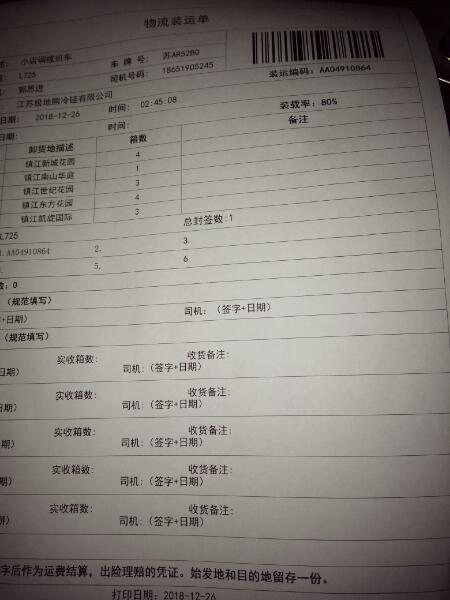 物流装运单
小店调拨班车 车 牌 号: 苏AR52B0
L725 司机号码: 18651905245 装运编码: AA04910864
郭思进
江苏极地熊冷链有限公司
日期: 2018-12-26 时间: 02:45:08 装载率: 80%
日期: 时间: 备注
卸货地描述 箱数
镇江新城花园 4
镇江南山华庭 1
镇江世纪花园 3
镇江东方花园 4
镇江凯旋国际 3
L725 总封签数:1
1.AA04910864 2. 3.
5. 6.
数: 0
(规范填写)
字+日期) 司机: (签字+日期)
(规范填写)
实收箱数: 收货备注:
日期) 司机: (签字+日期)
实收箱数: 收货备注:
日期) 司机: (签字+日期)
实收箱数: 收货备注:
期) 司机: (签字+日期)
实收箱数: 收货备注:
期) 司机: (签字+日期)
实收箱数: 收货备注:
日期) 司机: (签字+日期)
字后作为运费结算，出险理赔的凭证。始发地和目的地留存一份。
打印日期: 2018-12-26